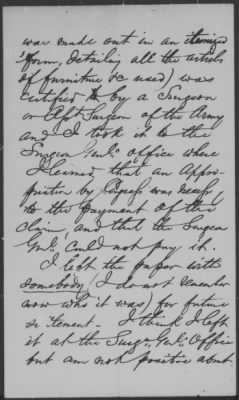 was made out in an itemized
form, detailing all the articles
of furniture &c used) was
certified to by a Surgeon
or Asst Surgeon of the Army
and I took it to the
Surgeon Genl's office where
I learned, that an Appro-
priation by Congress was necessy
to the payment of the
claim, and that the Surgeon
Genl. could not pay it.
I left the paper with
somebody (I do not remember
now who it was) for future
I think I left
it at the Surgn. Genl's Office
but am not positive about.